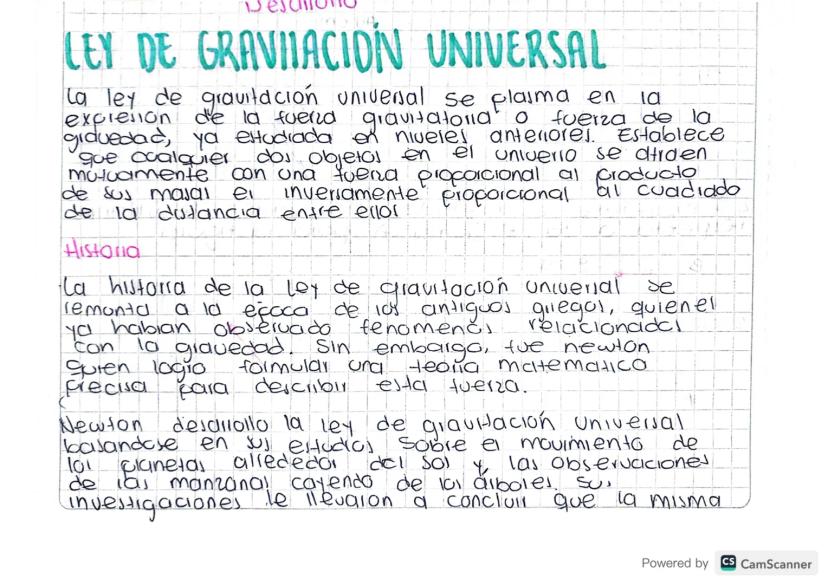 Desarrollo
LEY DE GRAVITACIÓN UNIVERSAL
La ley de gravitación universal se plasma en la
expresion de la fuerza gravitatoria o fuerza de la
gravedad, ya estudiada en niveles anteriores. Establece
que cualquier dos objetos en el universo se atraen
mutuamente con una fuerza proporcional al producto
de sus masas e inversamente proporcional al cuadrado
de la distancia entre ellos
Historia
La historia de la ley de gravitación universal se
remonta a la epoca de los antiguos griegos, quienes
ya habian observado fenomenos relacionados
con la gravedad. Sin embargo, fue newton
quien logro formular una teoria matematica
precisa para describir esta fuerza.
Newton desarrollo la ley de gravitación universal
basandose en sus estudios sobre el movimiento de
los planetas alrededor del sol y las observaciones
de las manzanas cayendo de los árboles. Sus
investigaciones le llevaron a concluir que la misma
Powered by CS CamScanner